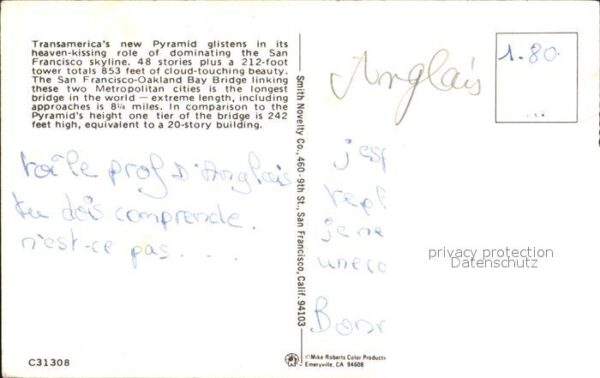 Transamerica's new Pyramid glistens in its
heaven-kissing role of dominating the San
Francisco skyline. 48 stories plus a 212-foot
tower totals 853 feet of cloud-touching beauty.
The San Francisco-Oakland Bay Bridge linking
these two Metropolitan cities is the longest
bridge in the world — extreme length, including
approaches is 8¼ miles. In comparison to the
Pyramid's height one tier of the bridge is 242
feet high, equivalent to a 20-story building.
prof D'Anglais
tu dois comprendre.
n'est-ce pas . . . .
C31308
Smith Novelty Co., 460 - 9th St., San Francisco, Calif. 94103
Anglais
1.80
jesp
repl
je ne
une co
Bonr
privacy protection
Datenschutz
©Mike Roberts Color Productio
Emeryville, CA 94608